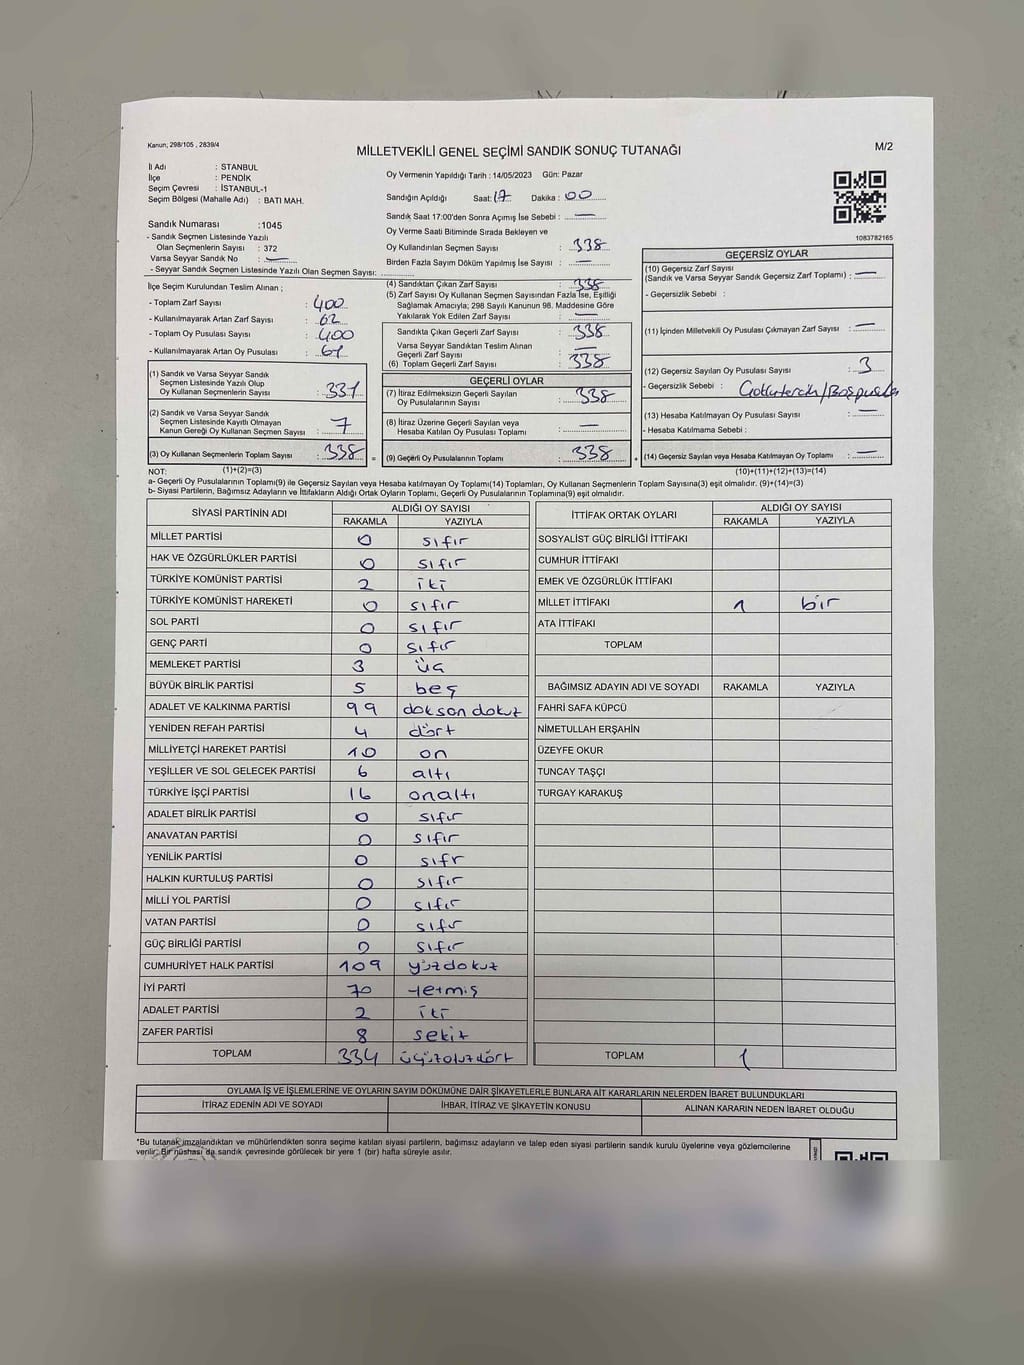 Kanun; 298/105 , 2839/4
MİLLETVEKİLİ GENEL SEÇİMİ SANDIK SONUÇ TUTANAĞI
M/2
İl Adı : STANBUL
İlçe : PENDİK
Seçim Çevresi : İSTANBUL-1
Seçim Bölgesi (Mahalle Adı) : BATI MAH.
Sandık Numarası :1045
- Sandık Seçmen Listesinde Yazılı
Olan Seçmenlerin Sayısı : 372
Varsa Seyyar Sandık No : —
- Seyyar Sandık Seçmen Listesinde Yazılı Olan Seçmen Sayısı:
İlçe Seçim Kurulundan Teslim Alınan ;
- Toplam Zarf Sayısı : 400
- Kullanılmayarak Artan Zarf Sayısı : 62
- Toplam Oy Pusulası Sayısı : 400
- Kullanılmayarak Artan Oy Pusulası : 61
(1) Sandık ve Varsa Seyyar Sandık
Seçmen Listesinde Yazılı Olup
Oy Kullanan Seçmenlerin Sayısı : 331
(2) Sandık ve Varsa Seyyar Sandık
Seçmen Listesinde Kayıtlı Olmayan
Kanun Gereği Oy Kullanan Seçmen Sayısı : 7
(3) Oy Kullanan Seçmenlerin Toplam Sayısı : 338 =
Oy Vermenin Yapıldığı Tarih : 14/05/2023 Gün: Pazar
Sandığın Açıldığı Saat: 17 Dakika : 00
Sandık Saat 17:00'den Sonra Açımış İse Sebebi : —
Oy Verme Saati Bitiminde Sırada Bekleyen ve
Oy Kullandırılan Seçmen Sayısı : 338
Birden Fazla Sayım Döküm Yapılmış İse Sayısı : —
(4) Sandıktan Çıkan Zarf Sayısı : 338
(5) Zarf Sayısı Oy Kullanan Seçmen Sayısından Fazla İse, Eşitliği
Sağlamak Amacıyla; 298 Sayılı Kanunun 98. Maddesine Göre
Yakılarak Yok Edilen Zarf Sayısı : —
Sandıkta Çıkan Geçerli Zarf Sayısı : 338
Varsa Seyyar Sandıktan Teslim Alınan
Geçerli Zarf Sayısı : —
(6) Toplam Geçerli Zarf Sayısı : 338
GEÇERLİ OYLAR
(7) İtiraz Edilmeksizin Geçerli Sayılan
Oy Pusulalarının Sayısı : 338
(8) İtiraz Üzerine Geçerli Sayılan veya
Hesaba Katılan Oy Pusulası Toplamı : —
(9) Geçerli Oy Pusulalarının Toplamı : 338 +
1083782165
GEÇERSİZ OYLAR
(10) Geçersiz Zarf Sayısı
(Sandık ve Varsa Seyyar Sandık Geçersiz Zarf Toplamı) : —
- Geçersizlik Sebebi :
(11) İçinden Milletvekili Oy Pusulası Çıkmayan Zarf Sayısı : —
(12) Geçersiz Sayılan Oy Pusulası Sayısı : 3
- Geçersizlik Sebebi :
(13) Hesaba Katılmayan Oy Pusulası Sayısı : —
- Hesaba Katılmama Sebebi :
(14) Geçersiz Sayılan veya Hesaba Katılmayan Oy Toplamı : —
NOT: (1)+(2)=(3) (10)+(11)+(12)+(13)=(14)
a- Geçerli Oy Pusulalarının Toplamı(9) ile Geçersiz Sayılan veya Hesaba katılmayan Oy Toplamı(14) Toplamları, Oy Kullanan Seçmenlerin Toplam Sayısına(3) eşit olmalıdır. (9)+(14)=(3)
b- Siyasi Partilerin, Bağımsız Adayların ve İttifakların Aldığı Ortak Oyların Toplamı, Geçerli Oy Pusulalarının Toplamına(9) eşit olmalıdır.
SİYASİ PARTİNİN ADI ALDIĞI OY SAYISI
RAKAMLA YAZIYLA
MİLLET PARTİSİ 0 sıfır
HAK VE ÖZGÜRLÜKLER PARTİSİ 0 sıfır
TÜRKİYE KOMÜNİST PARTİSİ 2 iki
TÜRKİYE KOMÜNİST HAREKETİ 0 sıfır
SOL PARTİ 0 sıfır
GENÇ PARTİ 0 sıfır
MEMLEKET PARTİSİ 3 üç
BÜYÜK BİRLİK PARTİSİ 5 beş
ADALET VE KALKINMA PARTİSİ 99 doksan dokuz
YENİDEN REFAH PARTİSİ 4 dört
MİLLİYETÇİ HAREKET PARTİSİ 10 on
YEŞİLLER VE SOL GELECEK PARTİSİ 6 altı
TÜRKİYE İŞÇİ PARTİSİ 16 onaltı
ADALET BİRLİK PARTİSİ 0 sıfır
ANAVATAN PARTİSİ 0 sıfır
YENİLİK PARTİSİ 0 sıfr
HALKIN KURTULUŞ PARTİSİ 0 sıfır
MİLLİ YOL PARTİSİ 0 sıfır
VATAN PARTİSİ 0 sıfır
GÜÇ BİRLİĞİ PARTİSİ 0 sıfır
CUMHURİYET HALK PARTİSİ 109 yüzdokuz
İYİ PARTİ 70 yetmiş
ADALET PARTİSİ 2 iki
ZAFER PARTİSİ 8 sekiz
TOPLAM 334 üçyüzotuzdört
İTTİFAK ORTAK OYLARI ALDIĞI OY SAYISI
RAKAMLA YAZIYLA
SOSYALİST GÜÇ BİRLİĞİ İTTİFAKI
CUMHUR İTTİFAKI
EMEK VE ÖZGÜRLÜK İTTİFAKI
MİLLET İTTİFAKI 1 bir
ATA İTTİFAKI
TOPLAM
BAĞIMSIZ ADAYIN ADI VE SOYADI RAKAMLA YAZIYLA
FAHRİ SAFA KÜPCÜ
NİMETULLAH ERŞAHİN
ÜZEYFE OKUR
TUNCAY TAŞÇI
TURGAY KARAKUŞ
TOPLAM 1
OYLAMA İŞ VE İŞLEMLERİNE VE OYLARIN SAYIM DÖKÜMÜNE DAİR ŞİKAYETLERLE BUNLARA AİT KARARLARIN NELERDEN İBARET BULUNDUKLARI
İTİRAZ EDENİN ADI VE SOYADI İHBAR, İTİRAZ VE ŞİKAYETİN KONUSU ALINAN KARARIN NEDEN İBARET OLDUĞU
*Bu tutanak imzalandıktan ve mühürlendikten sonra seçime katılan siyasi partilerin, bağımsız adayların ve talep eden siyasi partilerin sandık kurulu üyelerine veya gözlemcilerine
verilir. Bir nüshası da sandık çevresinde görülecek bir yere 1 (bir) hafta süreyle asılır.